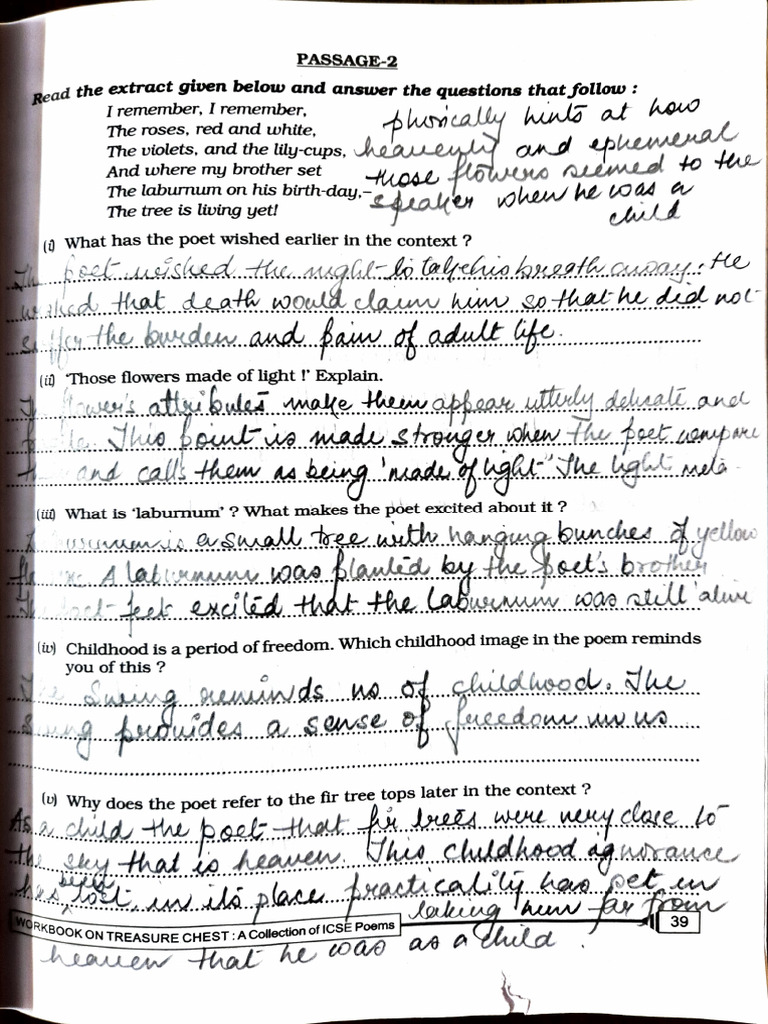 PASSAGE-2
Read the extract given below and answer the questions that follow :
I remember, I remember,
The roses, red and white,
The violets, and the lily-cups,
And where my brother set
The laburnum on his birth-day,–
The tree is living yet!
phorically hints at how
heavenly and ephemeral
those flowers seemed to the
speaker when he was a
child
(i) What has the poet wished earlier in the context ?
The poet wished the night to take his breath away. He
wished that death would claim him so that he did not
suffer the burden and pain of adult life.
(ii) 'Those flowers made of light !' Explain.
The flower's attributes make them appear utterly delicate and
This point is made stronger when the poet compare
and calls them as being 'made of light" The light meta-
(iii) What is 'laburnum' ? What makes the poet excited about it ?
Laburnum is a small tree with hanging bunches of yellow
A laburnum was planted by the poet's brother
The feet excited that the laburnum was still alive
(iv) Childhood is a period of freedom. Which childhood image in the poem reminds
you of this ?
The Swing reminds us of childhood. The
Swing provides a sense of freedom in us
(v) Why does the poet refer to the fir tree tops later in the context ?
As a child the poet that fir trees were very close to
the sky that is heaven. This childhood ignorance
has been lost, in its place practicality has set in
taking him far from
heaven that he was as a child.
WORKBOOK ON TREASURE CHEST : A Collection of ICSE Poems
39